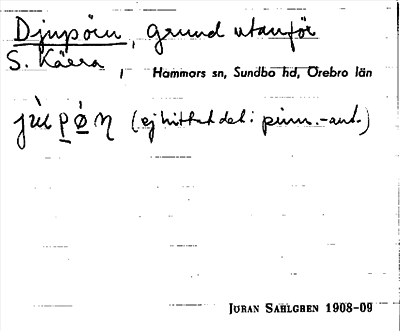 Djupörn, grund utanför
S. Kärra,
Hammars sn, Sundbo hd, Örebro län
(ej hittat det: pinn.-ant.)
JÖRAN SAHLGREN 1908-09